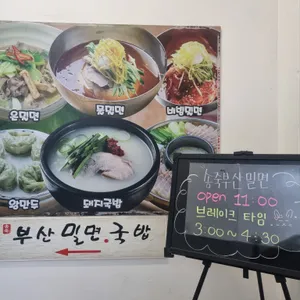 온밀면
물밀면
비빔밀면
왕만두
돼지국밥
부산밀면.국밥
송죽부산밀면
open 11:00
브레이크 타임
3:00~4:30